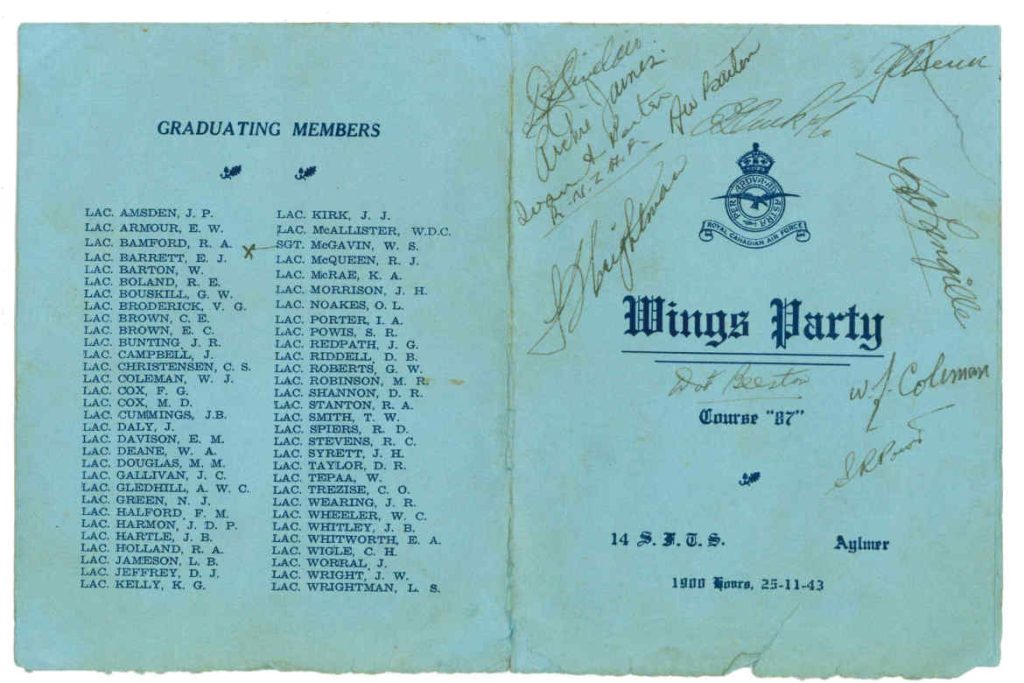 GRADUATING MEMBERS
LAC. AMSDEN, J. P.
LAC. ARMOUR, E. W.
LAC. BAMFORD, R. A. x
LAC. BARRETT, E. J.
LAC. BARTON, W.
LAC. BOLAND, R. E.
LAC. BOUSKILL, G. W.
LAC. BRODERICK, V. G.
LAC. BROWN, C. E.
LAC. BROWN, E. C.
LAC. BUNTING, J. R.
LAC. CAMPBELL, J.
LAC. CHRISTENSEN, C. S.
LAC. COLEMAN, W. J.
LAC. COX, F. G.
LAC. COX, M. D.
LAC. CUMMINGS, J.B.
LAC. DALY, J.
LAC. DAVISON, E. M.
LAC. DEANE, W. A.
LAC. DOUGLAS, M. M.
LAC. GALLIVAN, J. C.
LAC. GLEDHILL, A. W. C.
LAC. GREEN, N. J.
LAC. HALFORD, F. M.
LAC. HARMON, J. D. P.
LAC. HARTLE, J. B.
LAC. HOLLAND, R. A.
LAC. JAMESON, L. B.
LAC. JEFFREY, D. J.
LAC. KELLY, K. G.
LAC. KIRK, J. J.
LAC. McALLISTER, W.D.C.
SGT. McGAVIN, W. S.
LAC. McQUEEN, R. J.
LAC. McRAE, K. A.
LAC. MORRISON, J. H.
LAC. NOAKES, O. L.
LAC. PORTER, I. A.
LAC. POWIS, S. R.
LAC. REDPATH, J. G.
LAC. RIDDELL, D. B.
LAC. ROBERTS, G. W.
LAC. ROBINSON, M. R.
LAC. SHANNON, D. R.
LAC. STANTON, R. A.
LAC. SMITH, T. W.
LAC. SPIERS, R. D.
LAC. STEVENS, R. C.
LAC. SYRETT, J. H.
LAC. TAYLOR, D. R.
LAC. TEPAA, W.
LAC. TREZISE, C. O.
LAC. WEARING, J. R.
LAC. WHEELER, W. C.
LAC. WHITLEY, J. B.
LAC. WHITWORTH, E. A.
LAC. WIGLE, C. H.
LAC. WORRAL, J.
LAC. WRIGHT, J. W.
LAC. WRIGHTMAN, L. S.
Sinclair
Archie Jaines
Porter
R.N.Z.A.F.
Wrightman
PER ARDVA AD ASTRA
ROYAL CANADIAN AIR FORCE
Wings Party
Dot Beeston
W. J. Coleman
Course "87"
14 S. F. T. S.
Aylmer
1900 Hours, 25-11-43